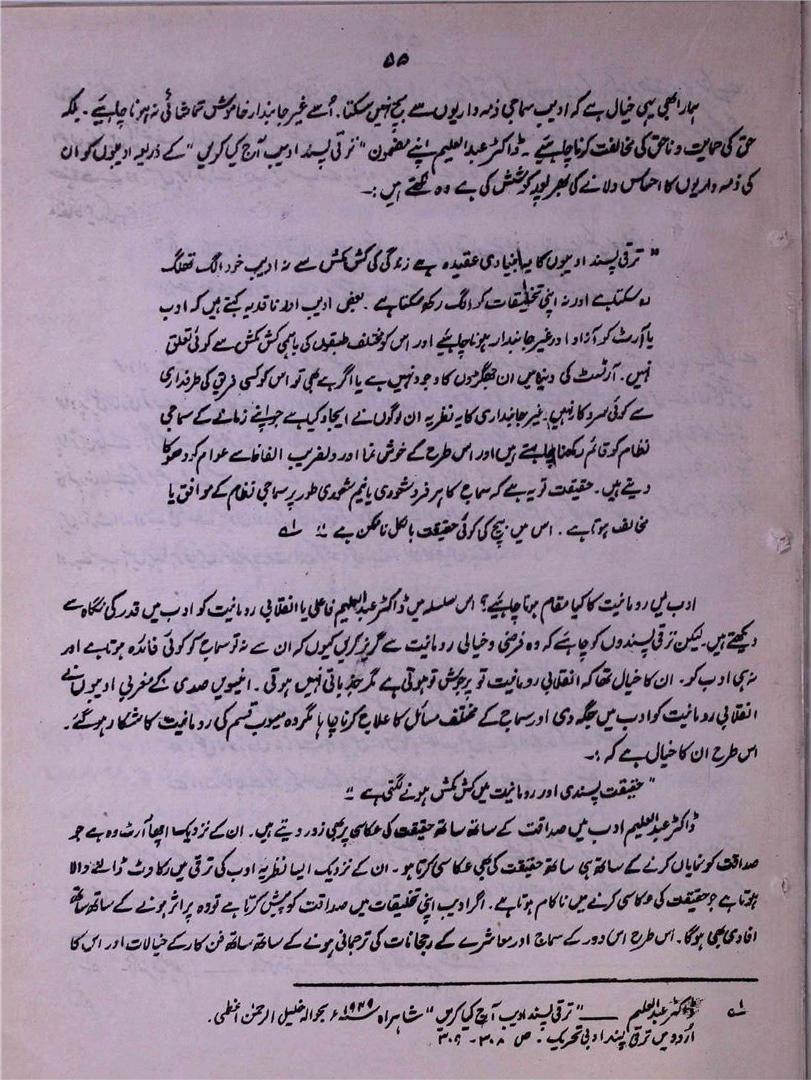 ۵۵
ہمارا بھی یہی خیال ہے کہ ادیب سماجی ذمہ داریوں سے بچ نہیں سکتا۔ اُسے غیر جانبدار خاموش تماشائی نہ ہونا چاہیے۔ بلکہ
حق کی حمایت و ناحق کی مخالفت کرنا چاہیے۔ ڈاکٹر عبدالعلیم اپنے مضمون "ترقی پسند ادیب آج کیا کریں" کے ذریعہ ادیبوں کو ان
کی ذمہ داریوں کا احساس دلانے کی بھرپور کوشش کی ہے وہ لکھتے ہیں :۔
" ترقی پسند ادیبوں کا یہ بنیادی عقیدہ ہے زندگی کی کش مکش سے نہ ادیب خود الگ تھلگ
رہ سکتا ہے اور نہ اپنی تخلیقات کو الگ رکھ سکتا ہے۔ بعض ادیب اور ناقد یہ کہتے ہیں کہ ادب
یا آرٹ کو آزاد اور غیر جانبدار ہونا چاہیے اور اس کو مختلف طبقوں کی باہمی کش مکش سے کوئی تعلق
نہیں۔ آرٹسٹ کی دنیا میں ان جھگڑوں کا وجود نہیں ہے یا اگر ہے بھی تو اس کو کسی فریق کی طرفداری
سے کوئی سروکار نہیں۔ غیر جانبداری کا یہ نظریہ ان لوگوں نے ایجاد کیا ہے جو اپنے زمانے کے سماجی
نظام کو قائم رکھنا چاہتے ہیں اور اس طرح کے خوش نما اور دلفریب الفاظ سے عوام کو دھوکا
دیتے ہیں۔ حقیقت تو یہ ہے کہ سماج کا ہر فرد شعوری یا نیم شعوری طور پر سماجی نظام کے موافق یا
مخالف ہوتا ہے۔ اس میں بیچ کی کوئی حقیقت بالکل ناممکن ہے " ۱؎
ادب میں رومانیت کا کیا مقام ہونا چاہیے؟ اس سلسلہ میں ڈاکٹر عبدالعلیم فاعلی یا انقلابی رومانیت کو ادب میں قدر کی نگاہ سے
دیکھتے ہیں۔ لیکن ترقی پسندوں کو چاہئے کہ وہ فرضی و خیالی رومانیت سے گریز کریں کیوں کہ ان سے نہ تو سماج کو کوئی فائدہ ہوتا ہے اور
نہ ہی ادب کو۔ ان کا خیال تھا کہ انقلابی رومانیت تو پرجوش تو ہوتی ہے مگر جذباتی نہیں ہوتی۔ انیسویں صدی کے مغربی ادیبوں نے
انقلابی رومانیت کو ادب میں جگہ دی اور سماج کے مختلف مسائل کا علاج کرنا چاہا مگر وہ معیوب قسم کی رومانیت کا شکار ہو گئے۔
اس طرح ان کا خیال ہے کہ :۔
" حقیقت پسندی اور رومانیت میں کش مکش ہونے لگتی ہے "
ڈاکٹر عبدالعلیم ادب میں صداقت کے ساتھ ساتھ حقیقت کی عکاسی پر بھی زور دیتے ہیں۔ ان کے نزدیک اچھا آرٹ وہ ہے جو
صداقت کو نمایاں کرنے کے ساتھ ہی ساتھ حقیقت کی بھی عکاسی کرتا ہو۔ ان کے نزدیک ایسا نظریہ ادب کی ترقی میں رکاوٹ ڈالنے والا
ہوتا ہے جو حقیقت کی عکاسی کرنے میں ناکام ہوتا ہے۔ اگر ادیب اپنی تخلیقات میں صداقت کو پیش کرتا ہے تو وہ پر اثر ہونے کے ساتھ ساتھ
افادی بھی ہوگا۔ اس طرح اس دور کے سماج اور معاشرے کے رجحانات کی ترجمانی ہونے کے ساتھ ساتھ فن کار کے خیالات اور اس کا
۱؎ ڈاکٹر عبدالعلیم ــــ "ترقی پسند ادیب آج کیا کریں" شاہراہ ۱۹۴۹ء بحوالہ خلیل الرحمٰن اعظمی۔
اُردو میں ترقی پسند ادبی تحریک۔ ص ۳۰۸۔ ۳۰۹